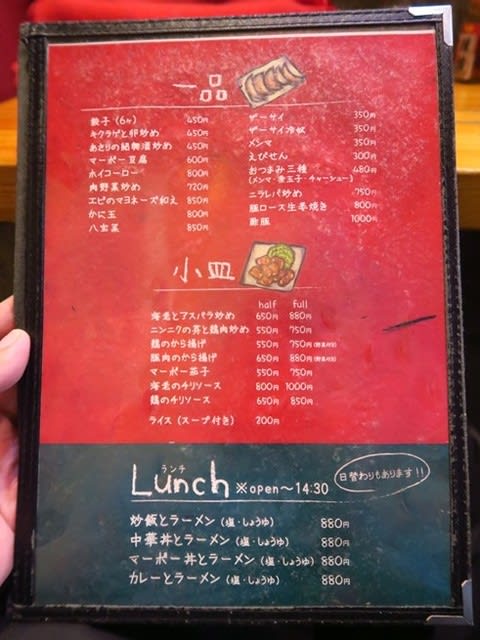 一品
餃子(6ヶ) 450円
キクラゲと卵炒め 450円
あさりの紹興酒炒め 450円
マーボー豆腐 600円
ホイコーロー 800円
肉野菜炒め 720円
エビのマヨネーズ和え 850円
かに玉 800円
八宝菜 850円
ザーサイ 350円
ザーサイ冷奴 350円
メンマ 350円
えびせん 300円
おつまみ三種 480円
(メンマ・煮玉子・チャーシュー)
ニラレバ炒め 750円
豚ロース生姜焼き 800円
酢豚 1000円
小皿
half full
海老とアスパラ炒め 650円 880円
ニンニクの芽と鶏肉炒め 550円 750円
鶏のから揚げ 550円 750円
豚肉のから揚げ 650円 880円
マーボー茄子 550円 750円
海老のチリソース 800円 1000円
鶏のチリソース 650円 850円
ライス(スープ付き) 200円
ランチ
Lunch ※open〜14:30
日替わりもあります!!
炒飯とラーメン(塩・しょうゆ) 880円
中華丼とラーメン(塩・しょうゆ) 880円
マーボー丼とラーメン(塩・しょうゆ) 880円
カレーとラーメン(塩・しょうゆ) 880円